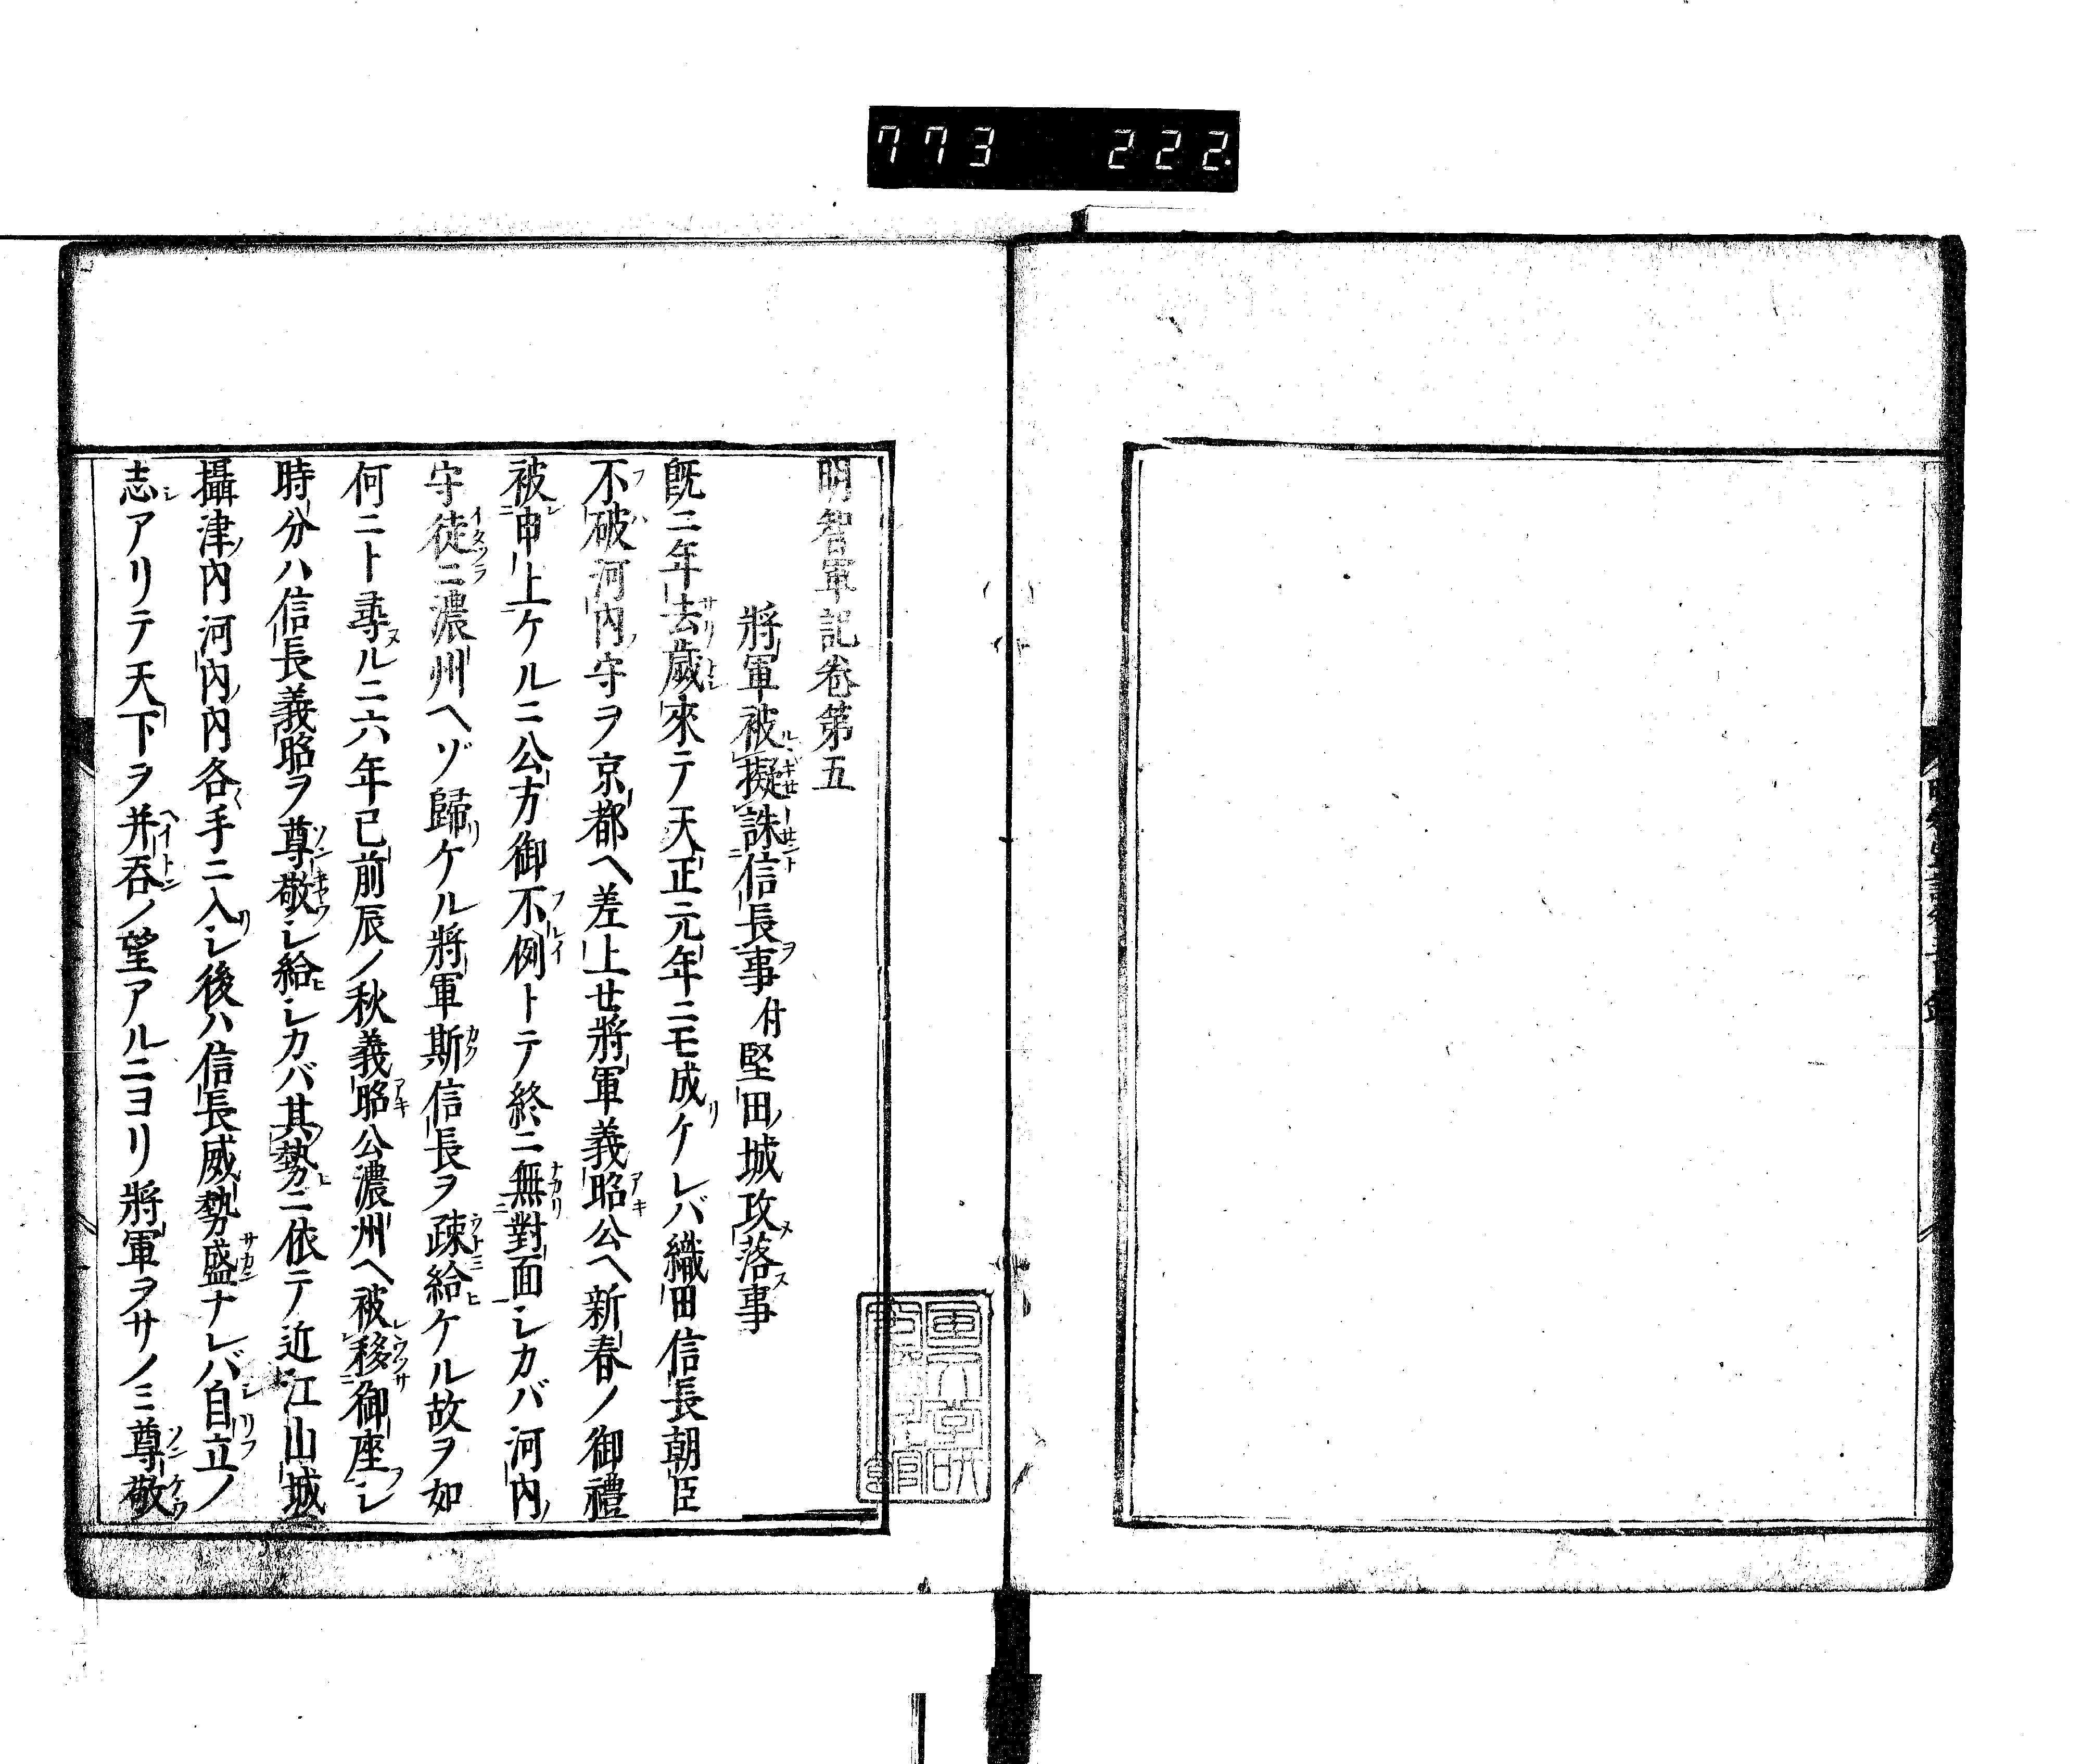 773 222.
明智軍記卷第五
將軍被擬誅信長事付堅田城攻落事
既ニ年去歲來テ天正元年ニモ成ケレバ織田信長朝臣
不破河內守ヲ京都ヘ差上セ將軍義昭公ヘ新春ノ御禮
被申上ケルニ公方御不例トテ終ニ無對面シカバ河內
守徒ニ濃州ヘゾ歸ケル將軍斯信長ヲ疎給ケル故ヲ如
何ニト尋ルニ六年已前辰ノ秋義昭公濃州ヘ被移御座シ
時分ハ信長義昭ヲ尊敬シ給シカバ其勢ニ依テ近江山城
攝津內河內內各手ニ入シ後ハ信長威勢盛ナレバ自立ノ
志アリテ天下ヲ并吞ノ望アルニヨリ將軍ヲサノミ尊敬